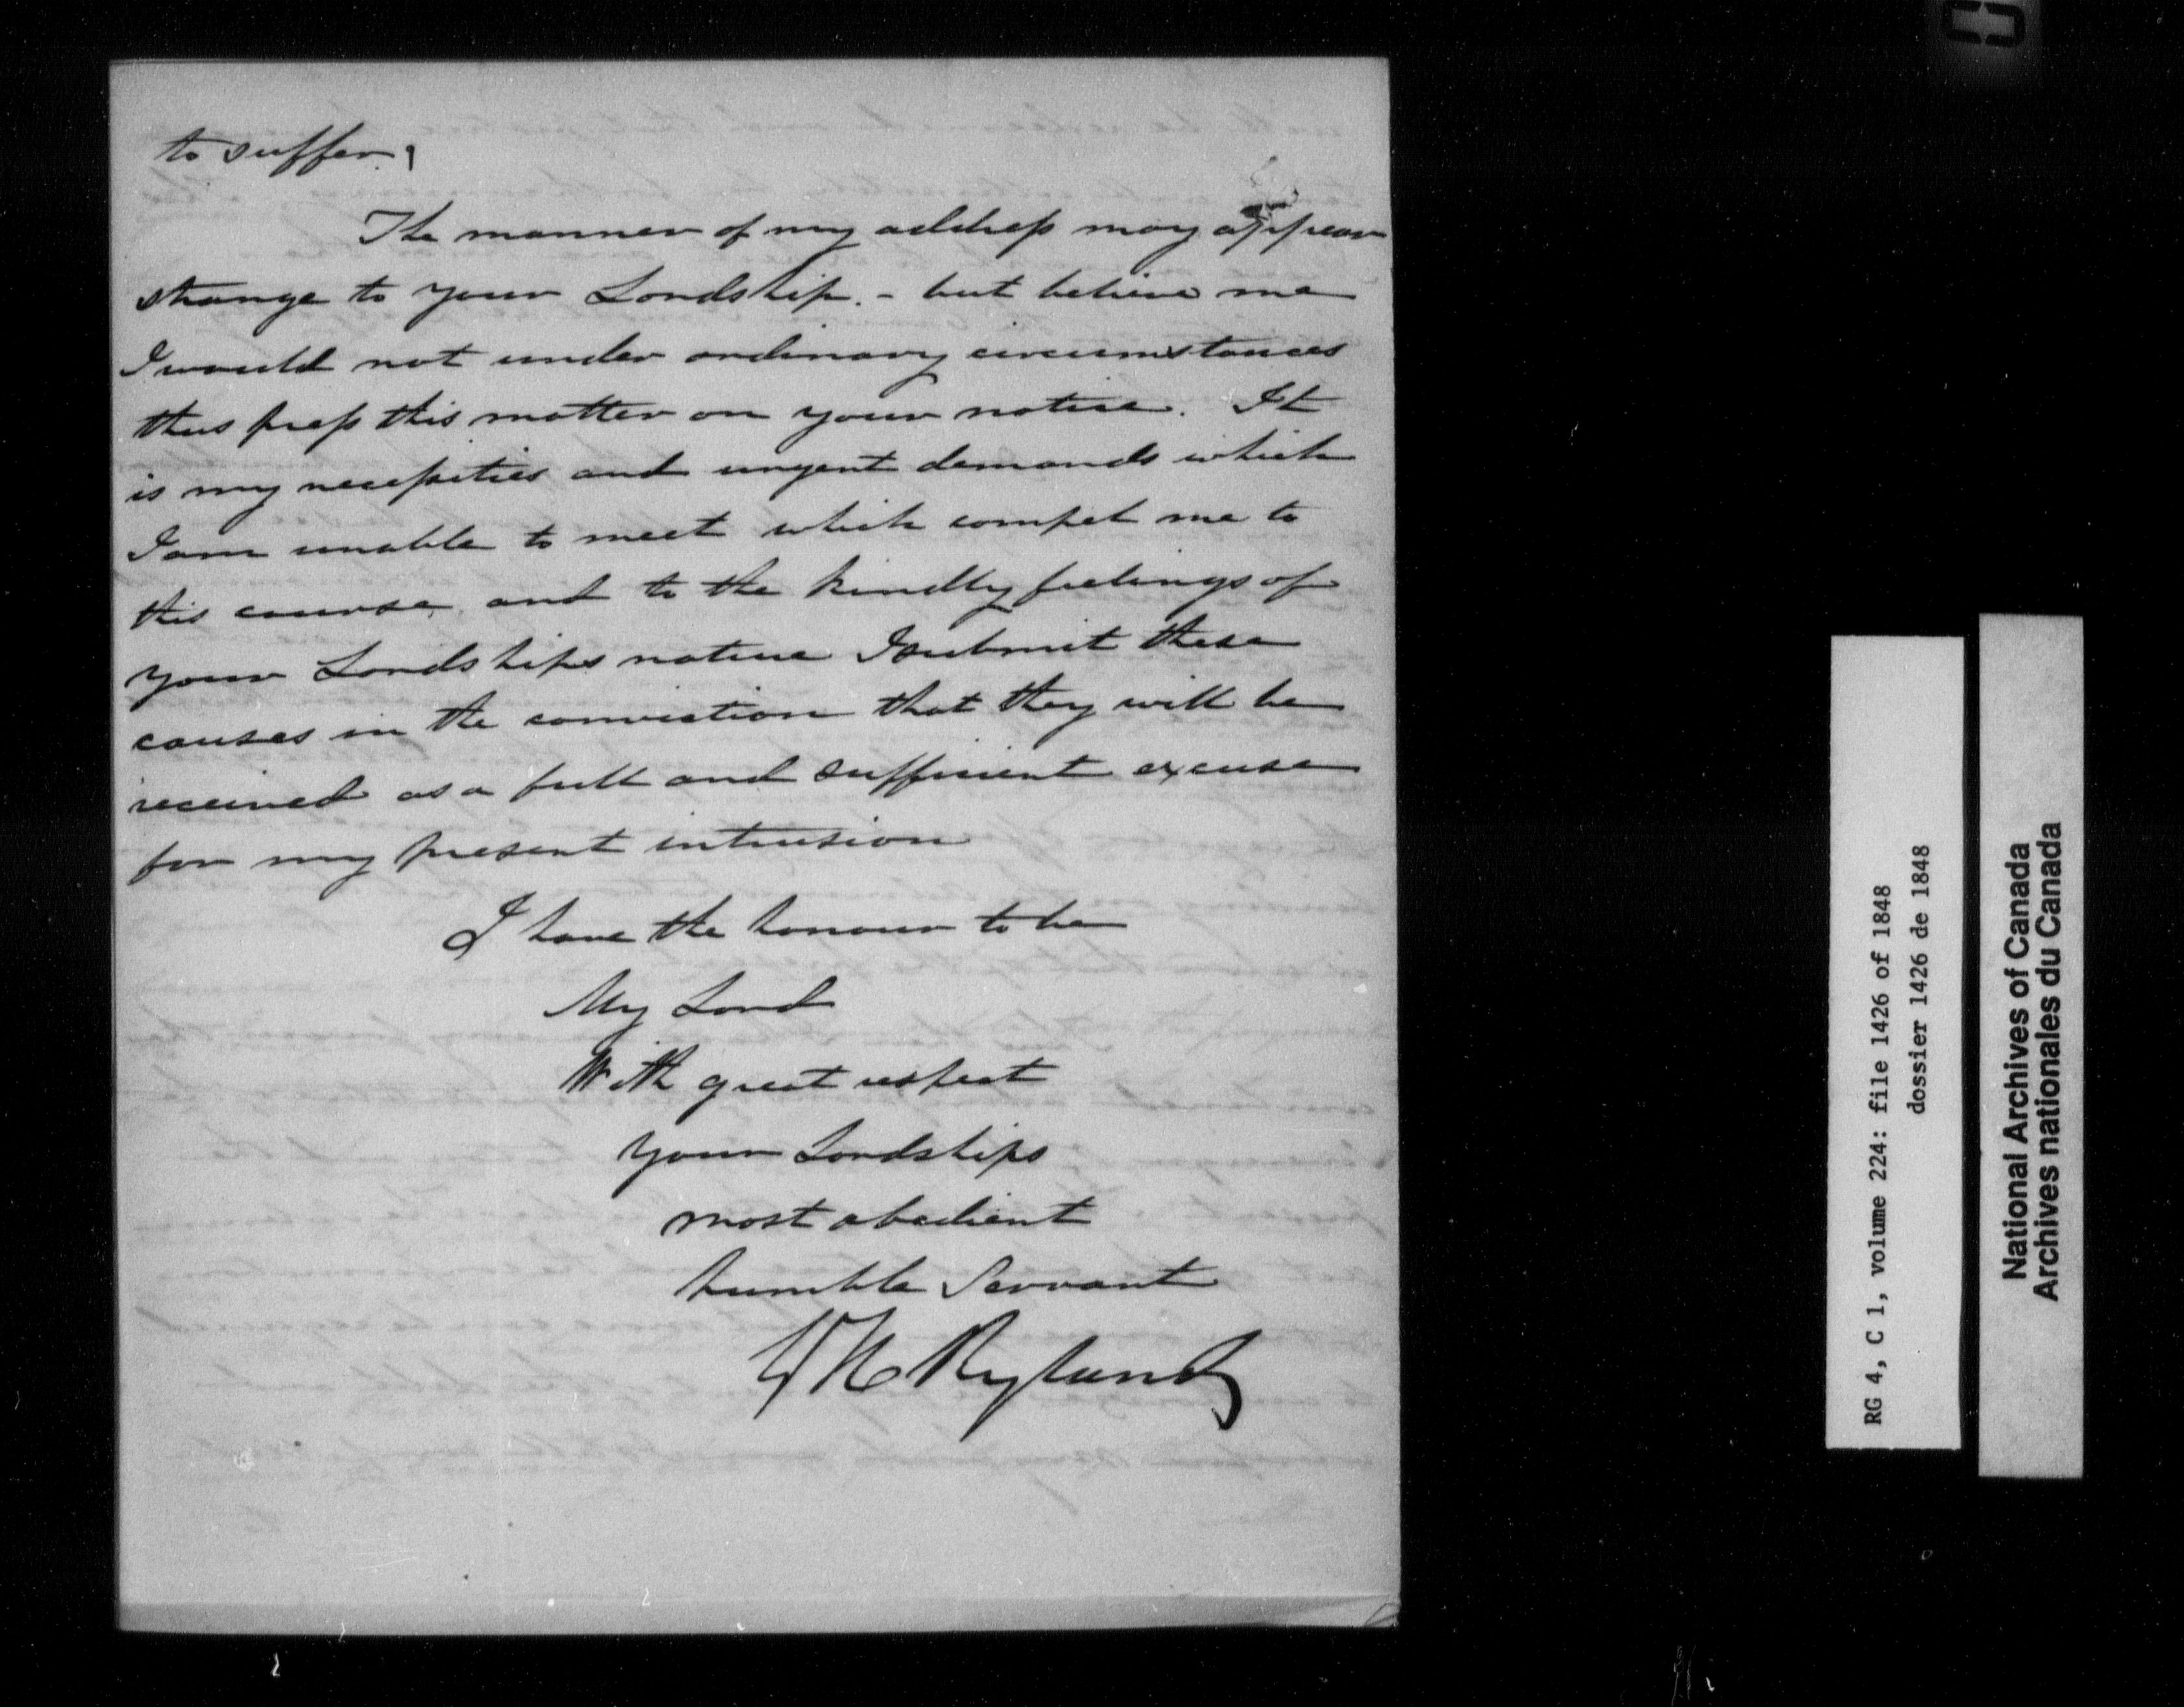 to suffer.
The manner of my address may appear
strange to your Lordship. - but believe me
I would not under ordinary circumstances
thus press this matter on your notice. It
is my necessities and urgent demands which
I am unable to meet which compel me to
this course, and to the kindly feelings of
your Lordships nature I submit these
causes in the conviction that they will be
received as a full and sufficient excuse
for my present intrusion
I have the honour to be
My Lord
With great respect
your Lordships
most obedient
humble Servant
GH Ryland
RG 4, C 1, volume 224: file 1426 of 1848
dossier 1426 de 1848
National Archives of Canada
Archives nationales du Canada